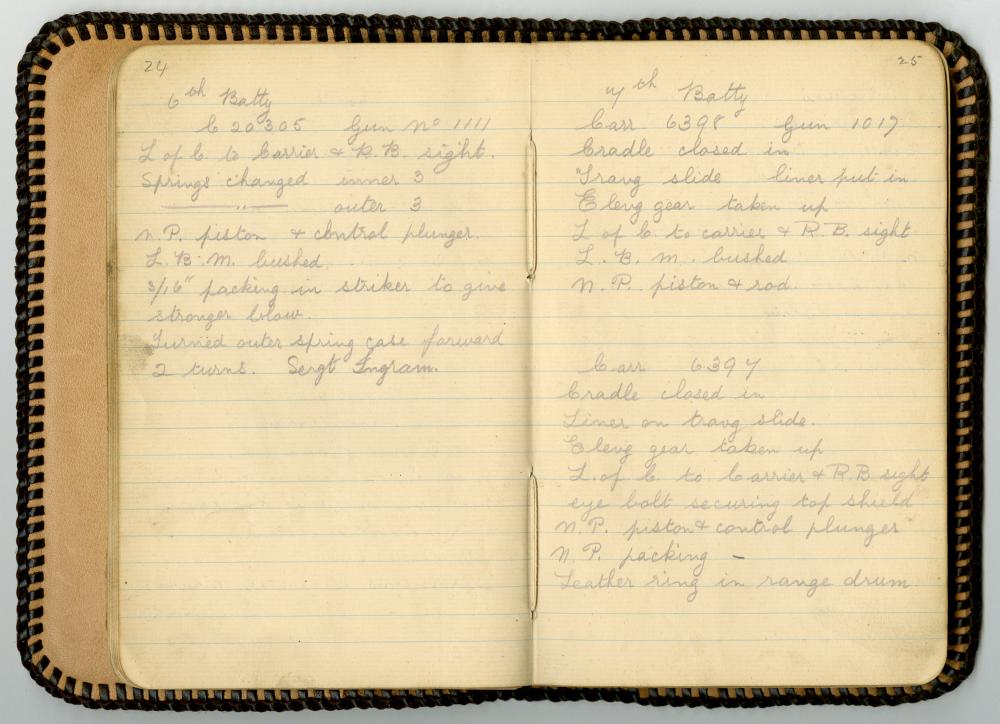 24
6th Batty
C 20305. Gun No 1111
L of C. to Carrier & R.B. sight.
Springs changed inner 3
—— " —— outer 3
N.P. piston & control plunger.
L.B.M. bushed.
3/16" packing in striker to give
stronger blow.
Turned outer spring case forward
2 turns. Sergt Ingram.
25
7th Batty
Carr 6398 Gun 1017
Cradle closed in
Travg slide liner put in
Elevg gear taken up
L of C. to carrier & R.B. sight
L.B.M. bushed
N.P. piston & rod.
Carr 6397
Cradle closed in
Liner on travg slide.
Elevg gear taken up
L. of C. to Carrier & R B sight
eye bolt securing top shield
N.P. piston & control plunger
N.P. packing –
Leather ring in range drum